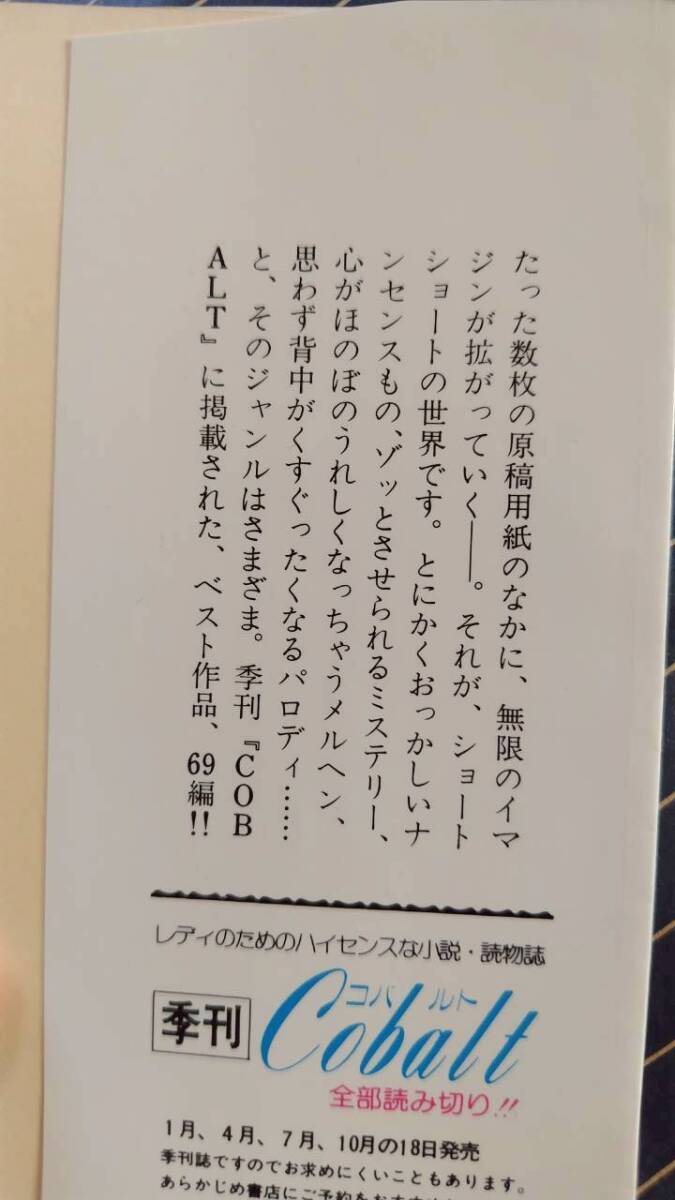 たった数枚の原稿用紙のなかに、無限のイマ
ジンが拡がっていく――。それが、ショート
ショートの世界です。とにかくおっかしいナ
ンセンスもの、ゾッとさせられるミステリー、
心がほのぼのうれしくなっちゃうメルヘン、
思わず背中がくすぐったくなるパロディ……
と、そのジャンルはさまざま。季刊『COB
ALT』に掲載された、ベスト作品、69編!!
レディのためのハイセンスな小説・読物誌
季刊
コバルト
Cobalt
全部読み切り!!
1月、4月、7月、10月の18日発売
季刊誌ですのでお求めにくいこともあります。
あらかじめ書店にご予約をおすすめ